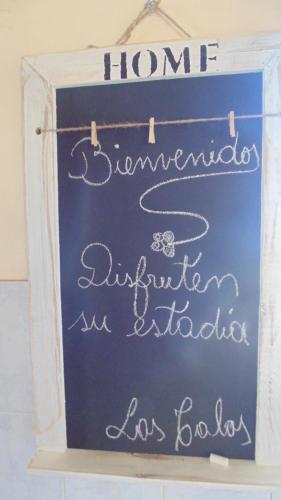 HOME
Bienvenidos
Disfruten
su estadía
Los Talas